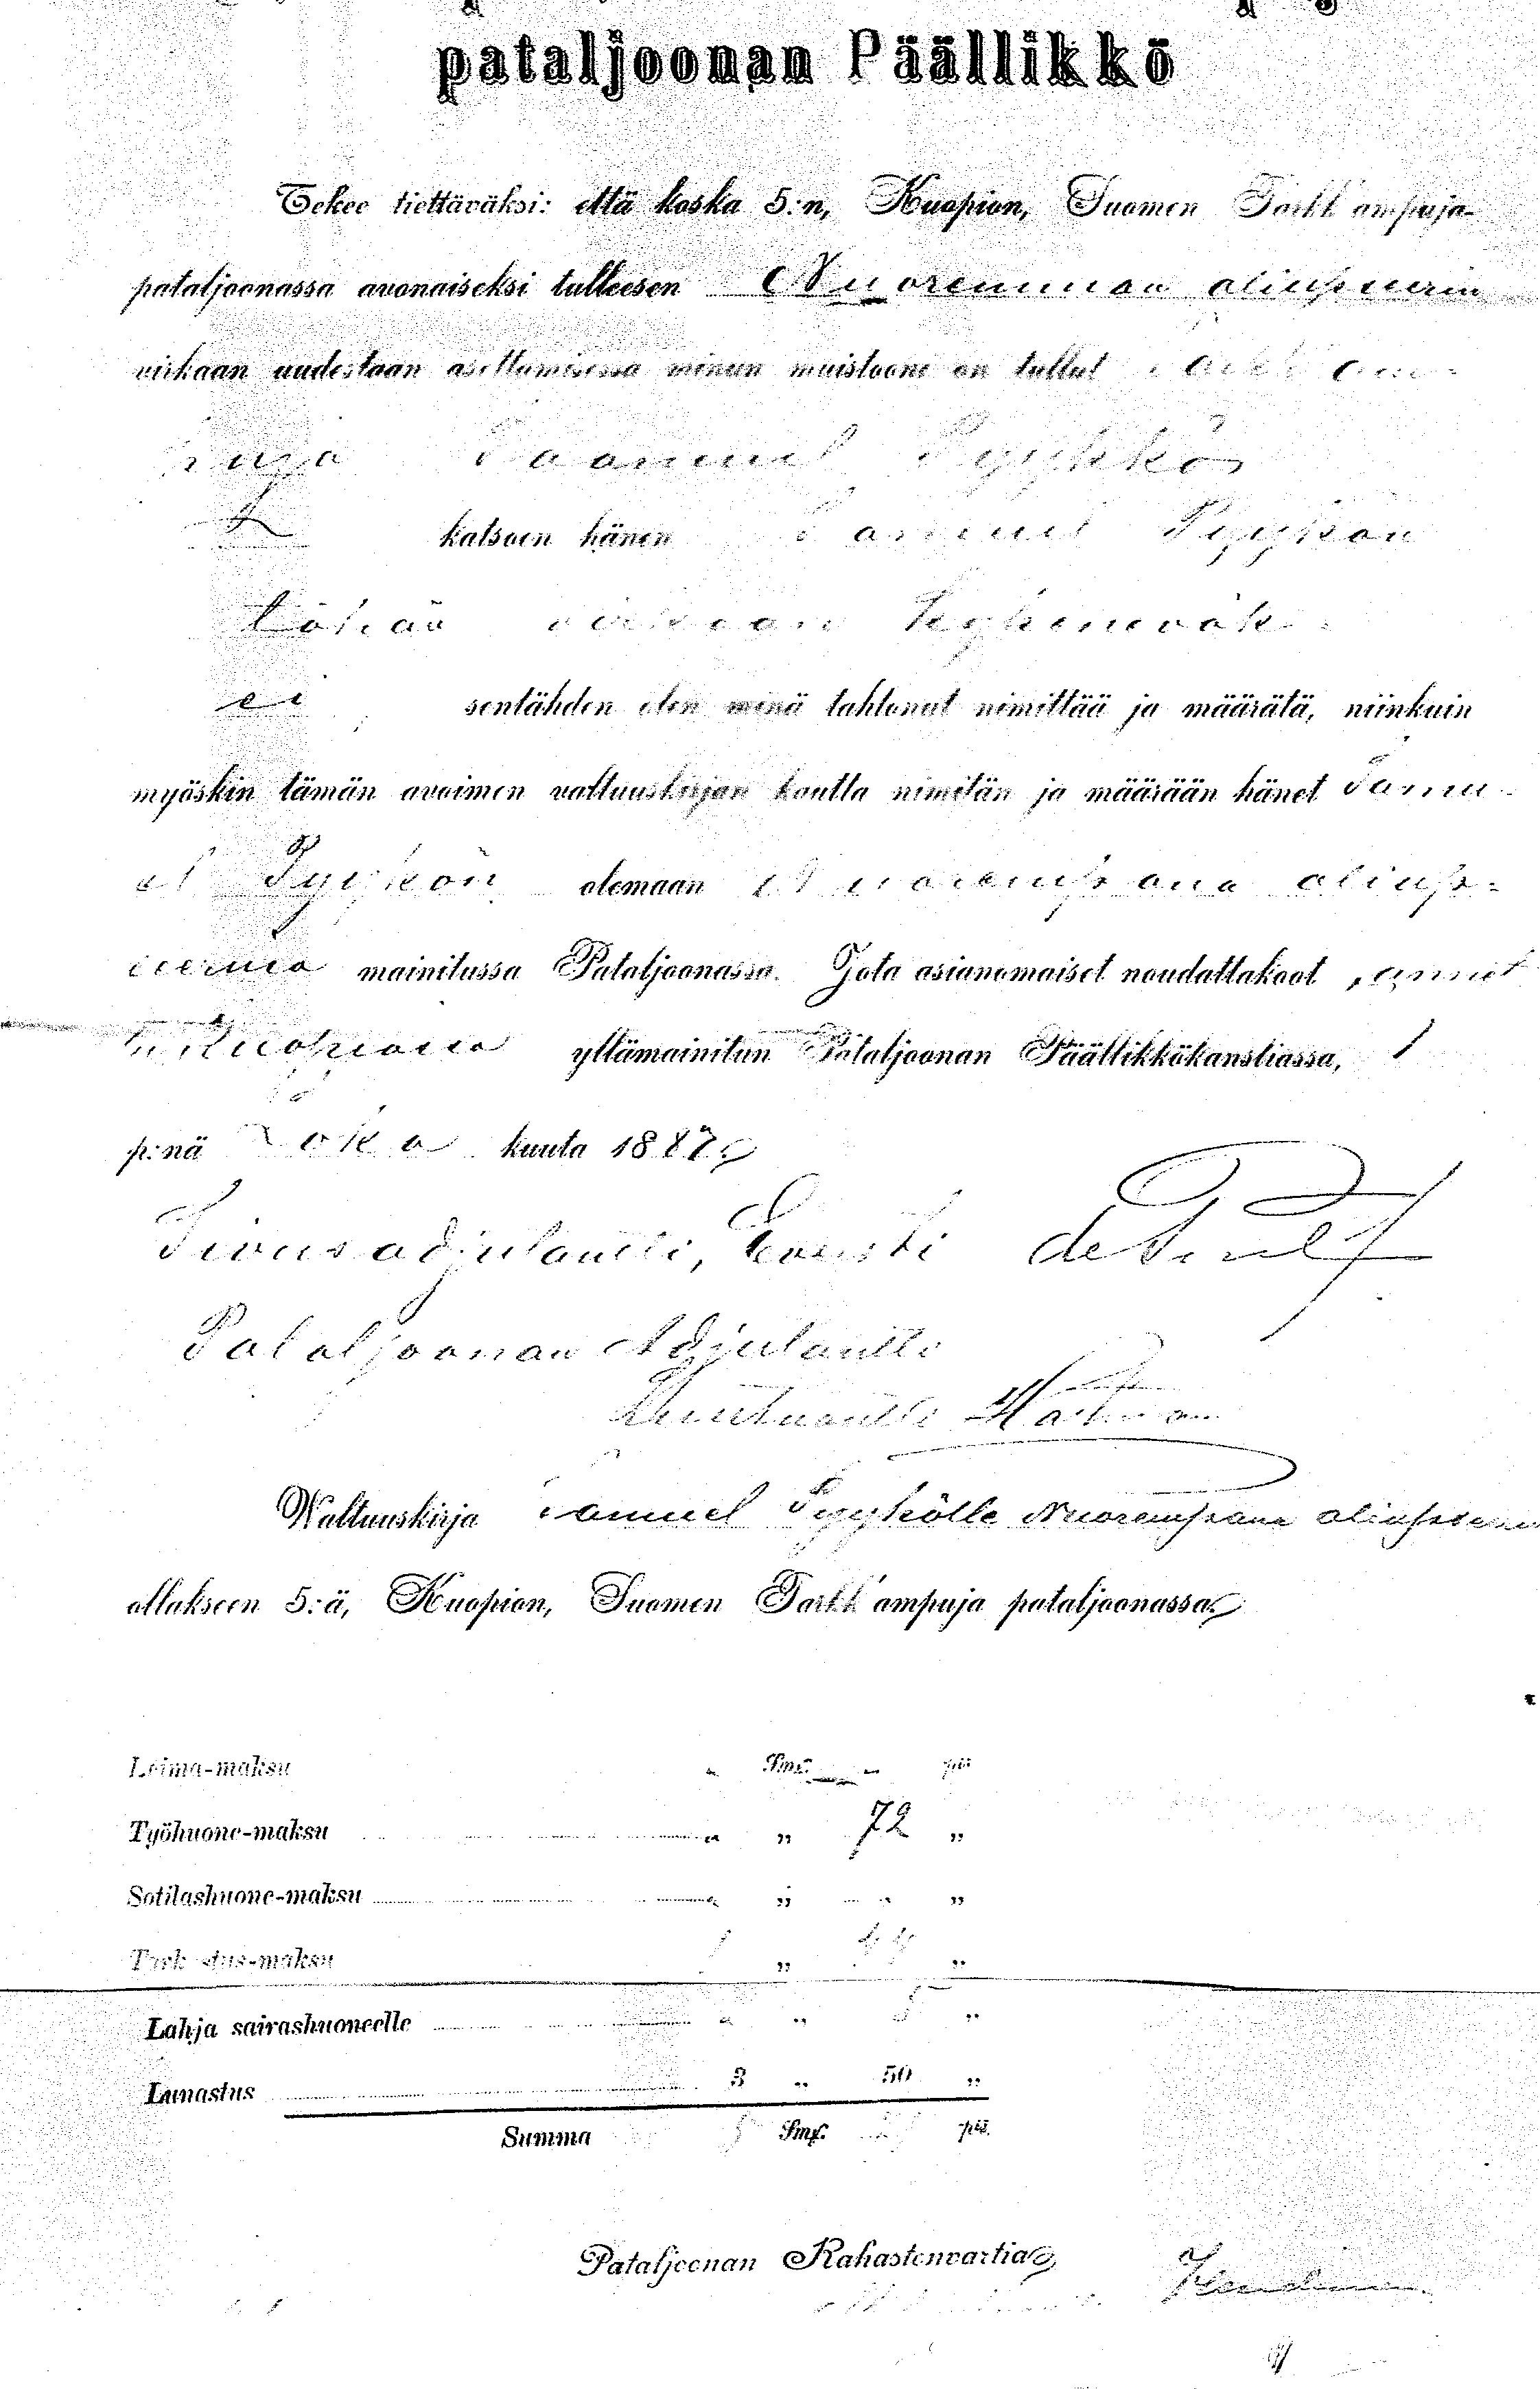 pataljoonan Päällikkö
Tekee tiettäväksi: että koska 5:n, Kuopion, Suomen Tarkk'ampuja-
pataljoonassa avonaiseksi tulleesen Nuoremman aliupseerin
virkaan uudestaan asettamisessa minun muistooni on tullut Tarkk'am-
puja Saamuel Pyykkö,
katsoen hänen Samuel Pyykön
tähän virkaan kykeneväk-
si sentähden olen minä tahtonut nimittää ja määrätä, niinkuin
myöskin tämän avoimen valtuuskirjan kautta nimitän ja määrään hänet Samu-
el Pyykön olemaan Nuorempana aliups-
eerina mainitussa Pataljoonassa. Jota asianomaiset noudattakoot, annettu
Kuopiossa yllämainitun Pataljoonan Päällikkökansliassa, 1
p:nä loka kuuta 1887.
Sivusadjutantti, Eversti de Pont
Pataljoonan Adjutantti
Luutnantti
Waltuuskirja Samuel Pyykölle Nuorempana aliupseerina
ollakseen 5:ä, Kuopion, Suomen Tarkk'ampuja pataljoonassa.
Leima-maksu " Smk: " piä
Työhuone-maksu " „ 72 „
Sotilashuone-maksu " „ " „
Tarkastus-maksu „ „
Lahja sairashuoneelle " „ „
Lunastus 3 „ 50 „
Summa Smk. piä.
Pataljoonan Rahastonvartia